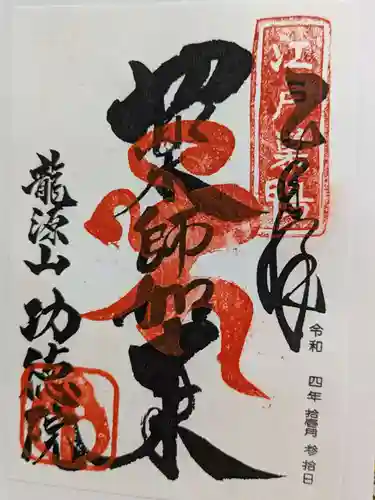 江戸
奉拝
令和 四年 拾壱月 参拾日
薬師如来
龍源山 功徳院